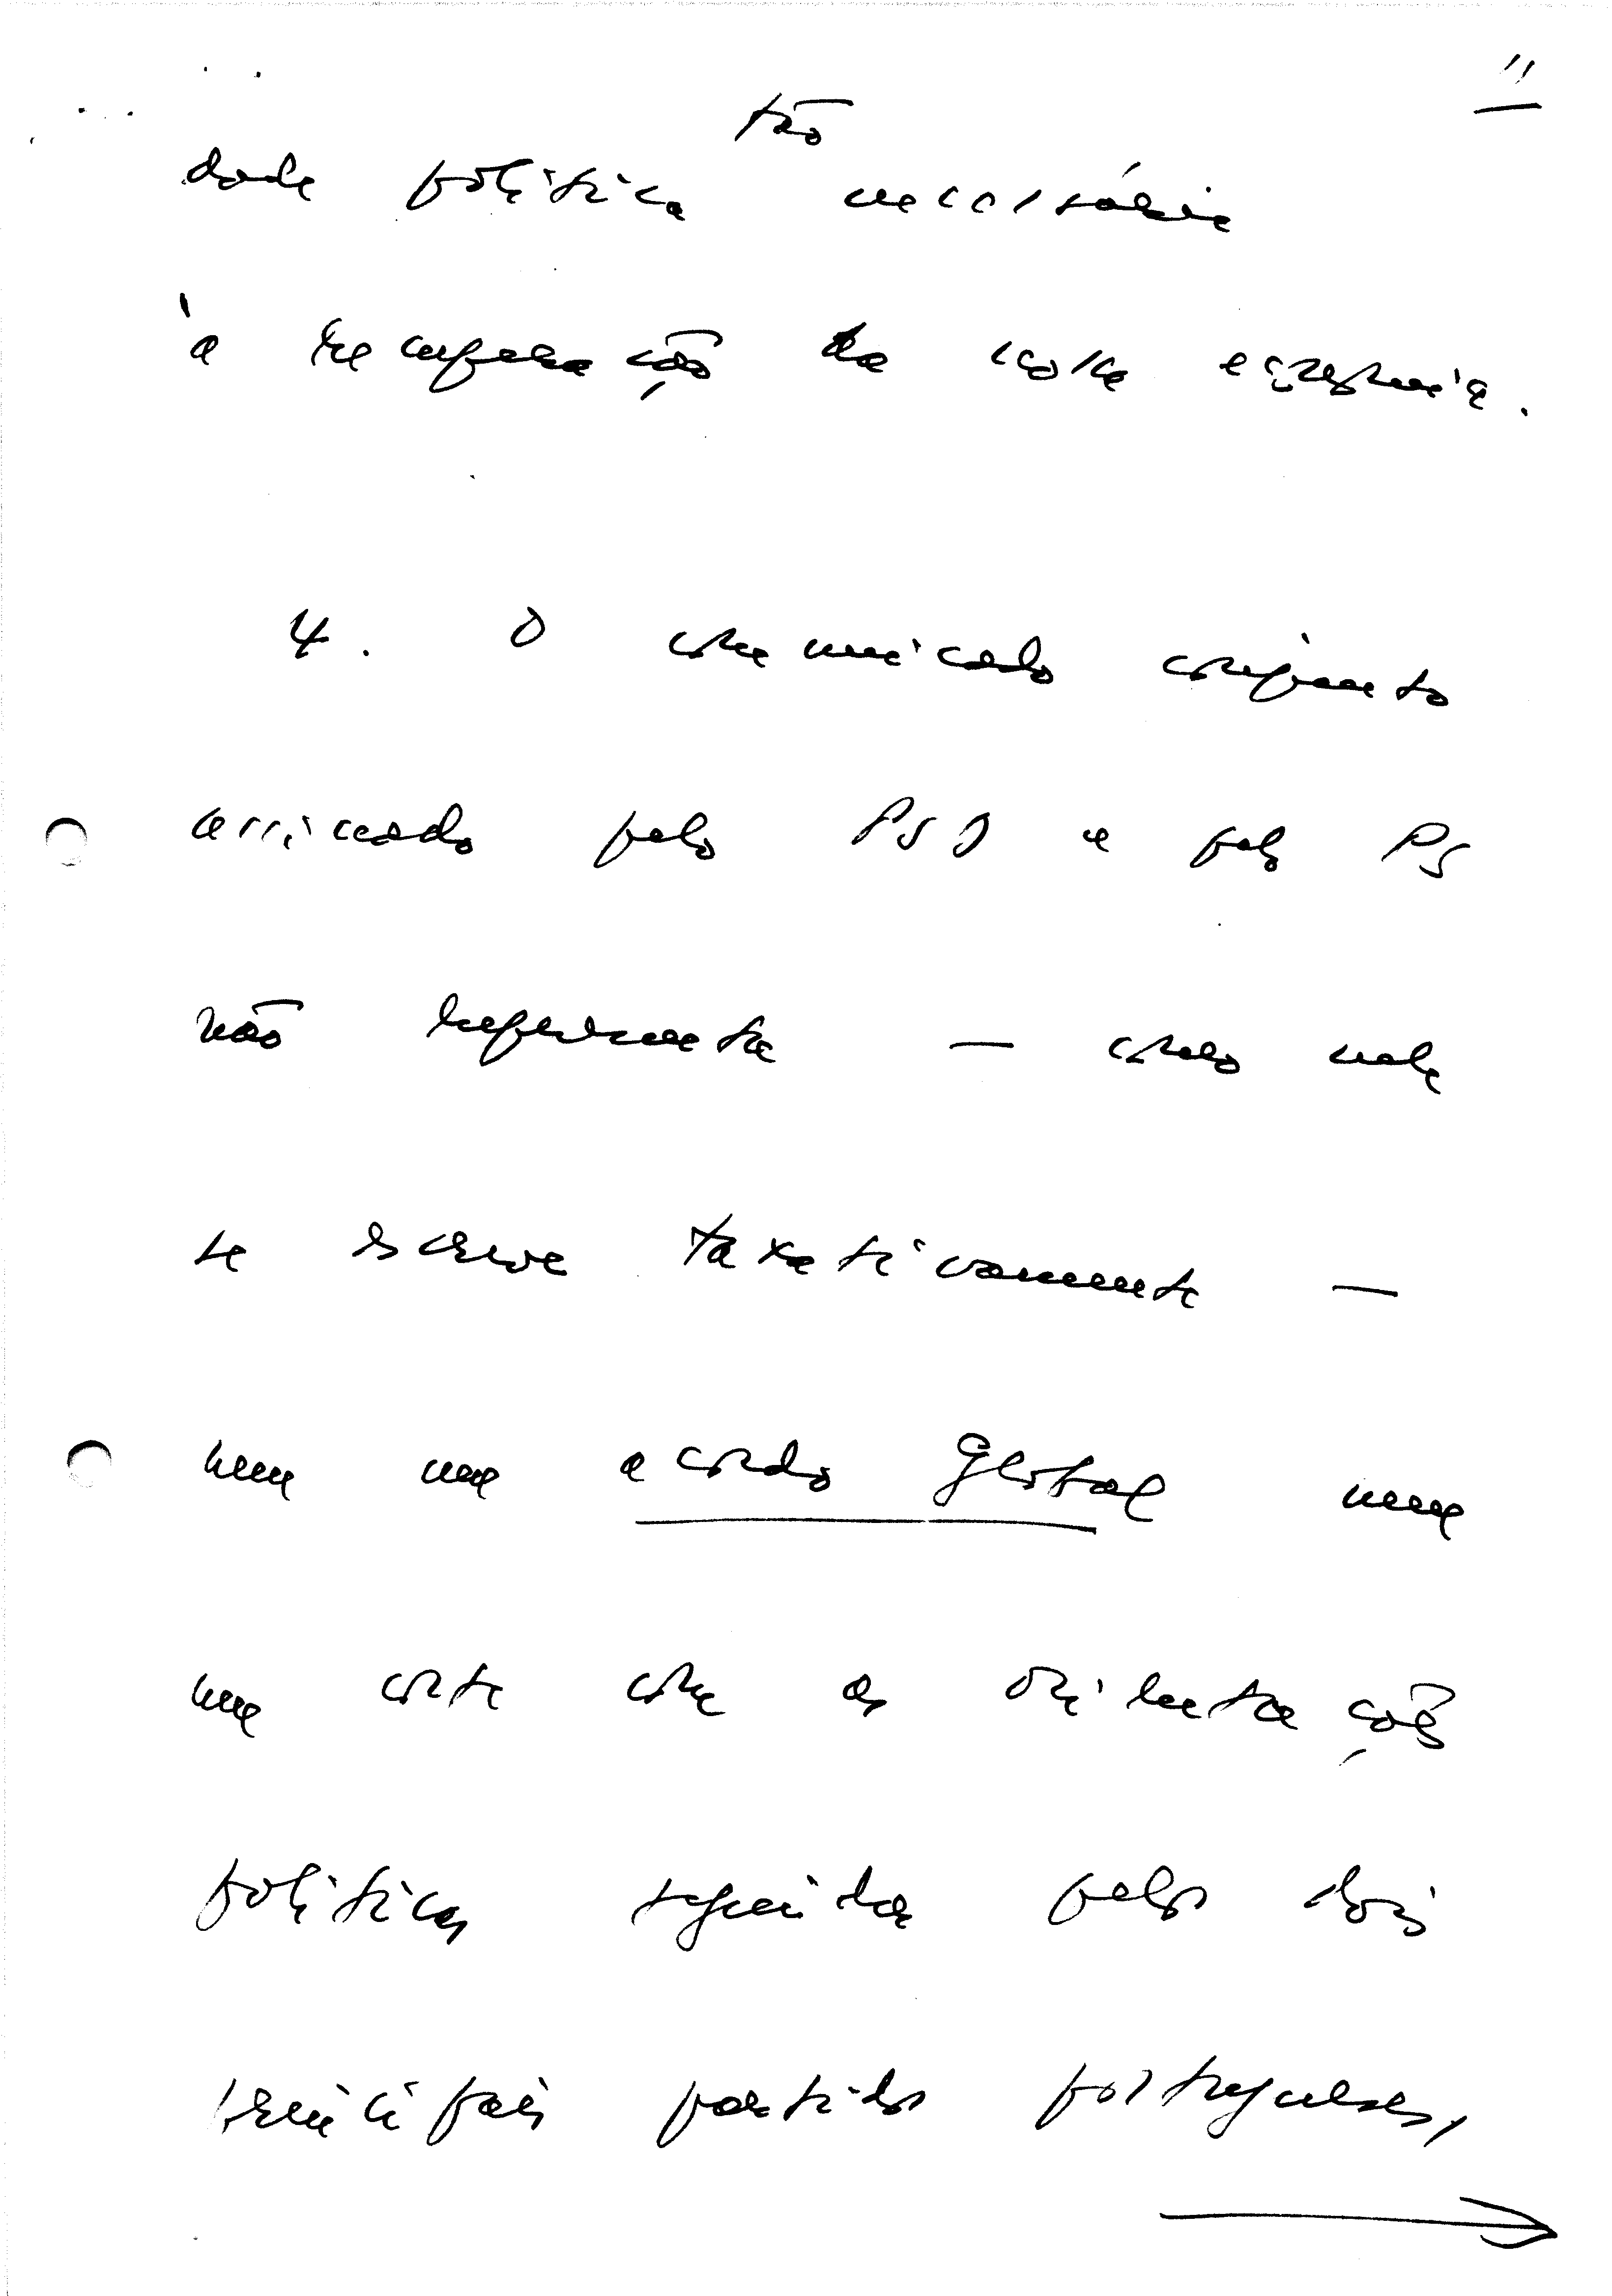 11
tão
dade política necessária
à recuperação da nossa economia.
4. O comunicado conjunto
assinado pelo PSD e pelo PS
não representa — como nele
se escreve taxativamente —
nem um acordo global nem
um corte com as orientações
políticas seguidas pelos dois
principais partidos portugueses,